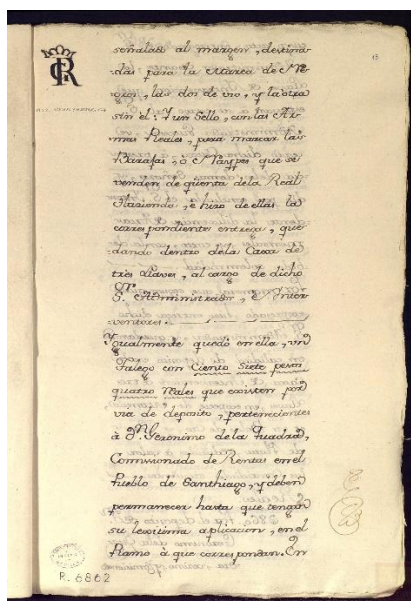 señalas al margen, destina-
das para la Marca de Ne-
gros, las dos de uso, y la otra
sin el: Y un Sello, con las Ar-
mas Reales, para marcar las
Barajas, ò Naypes que se
venden de quenta dela Real
Hacienda, è hizo de ellas la
correspondiente entrega, que-
dando dentro dela Caxa de
tres Llaves, al cargo de dicho
S.or Administrador, è Inter-
ventores.
Ygualmente quedò en ella, un
Talego con Ciento Siete pesos
quatro reales que existen por
via de deposito, pertenecientes
à Dn. Geronimo dela Quadra,
Comisionado de Rentas en el
Pueblo de Santhiago, y deben
permanecer hasta que tengan
su lexitima aplicacion, en el
Ramo à que correspondan. En
R. 6862